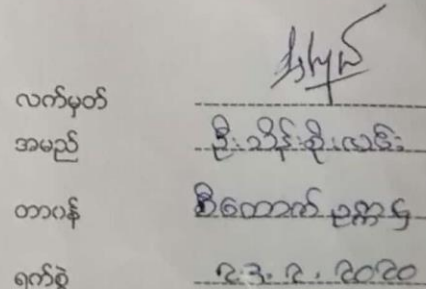 လက်မှတ်
အမည် ဦးသိန်းစိုးလင်း
တာဝန် စီထောက် ဥက္ကဋ္ဌ
ရက်စွဲ ၎.၃.၂.၂၀၂၀